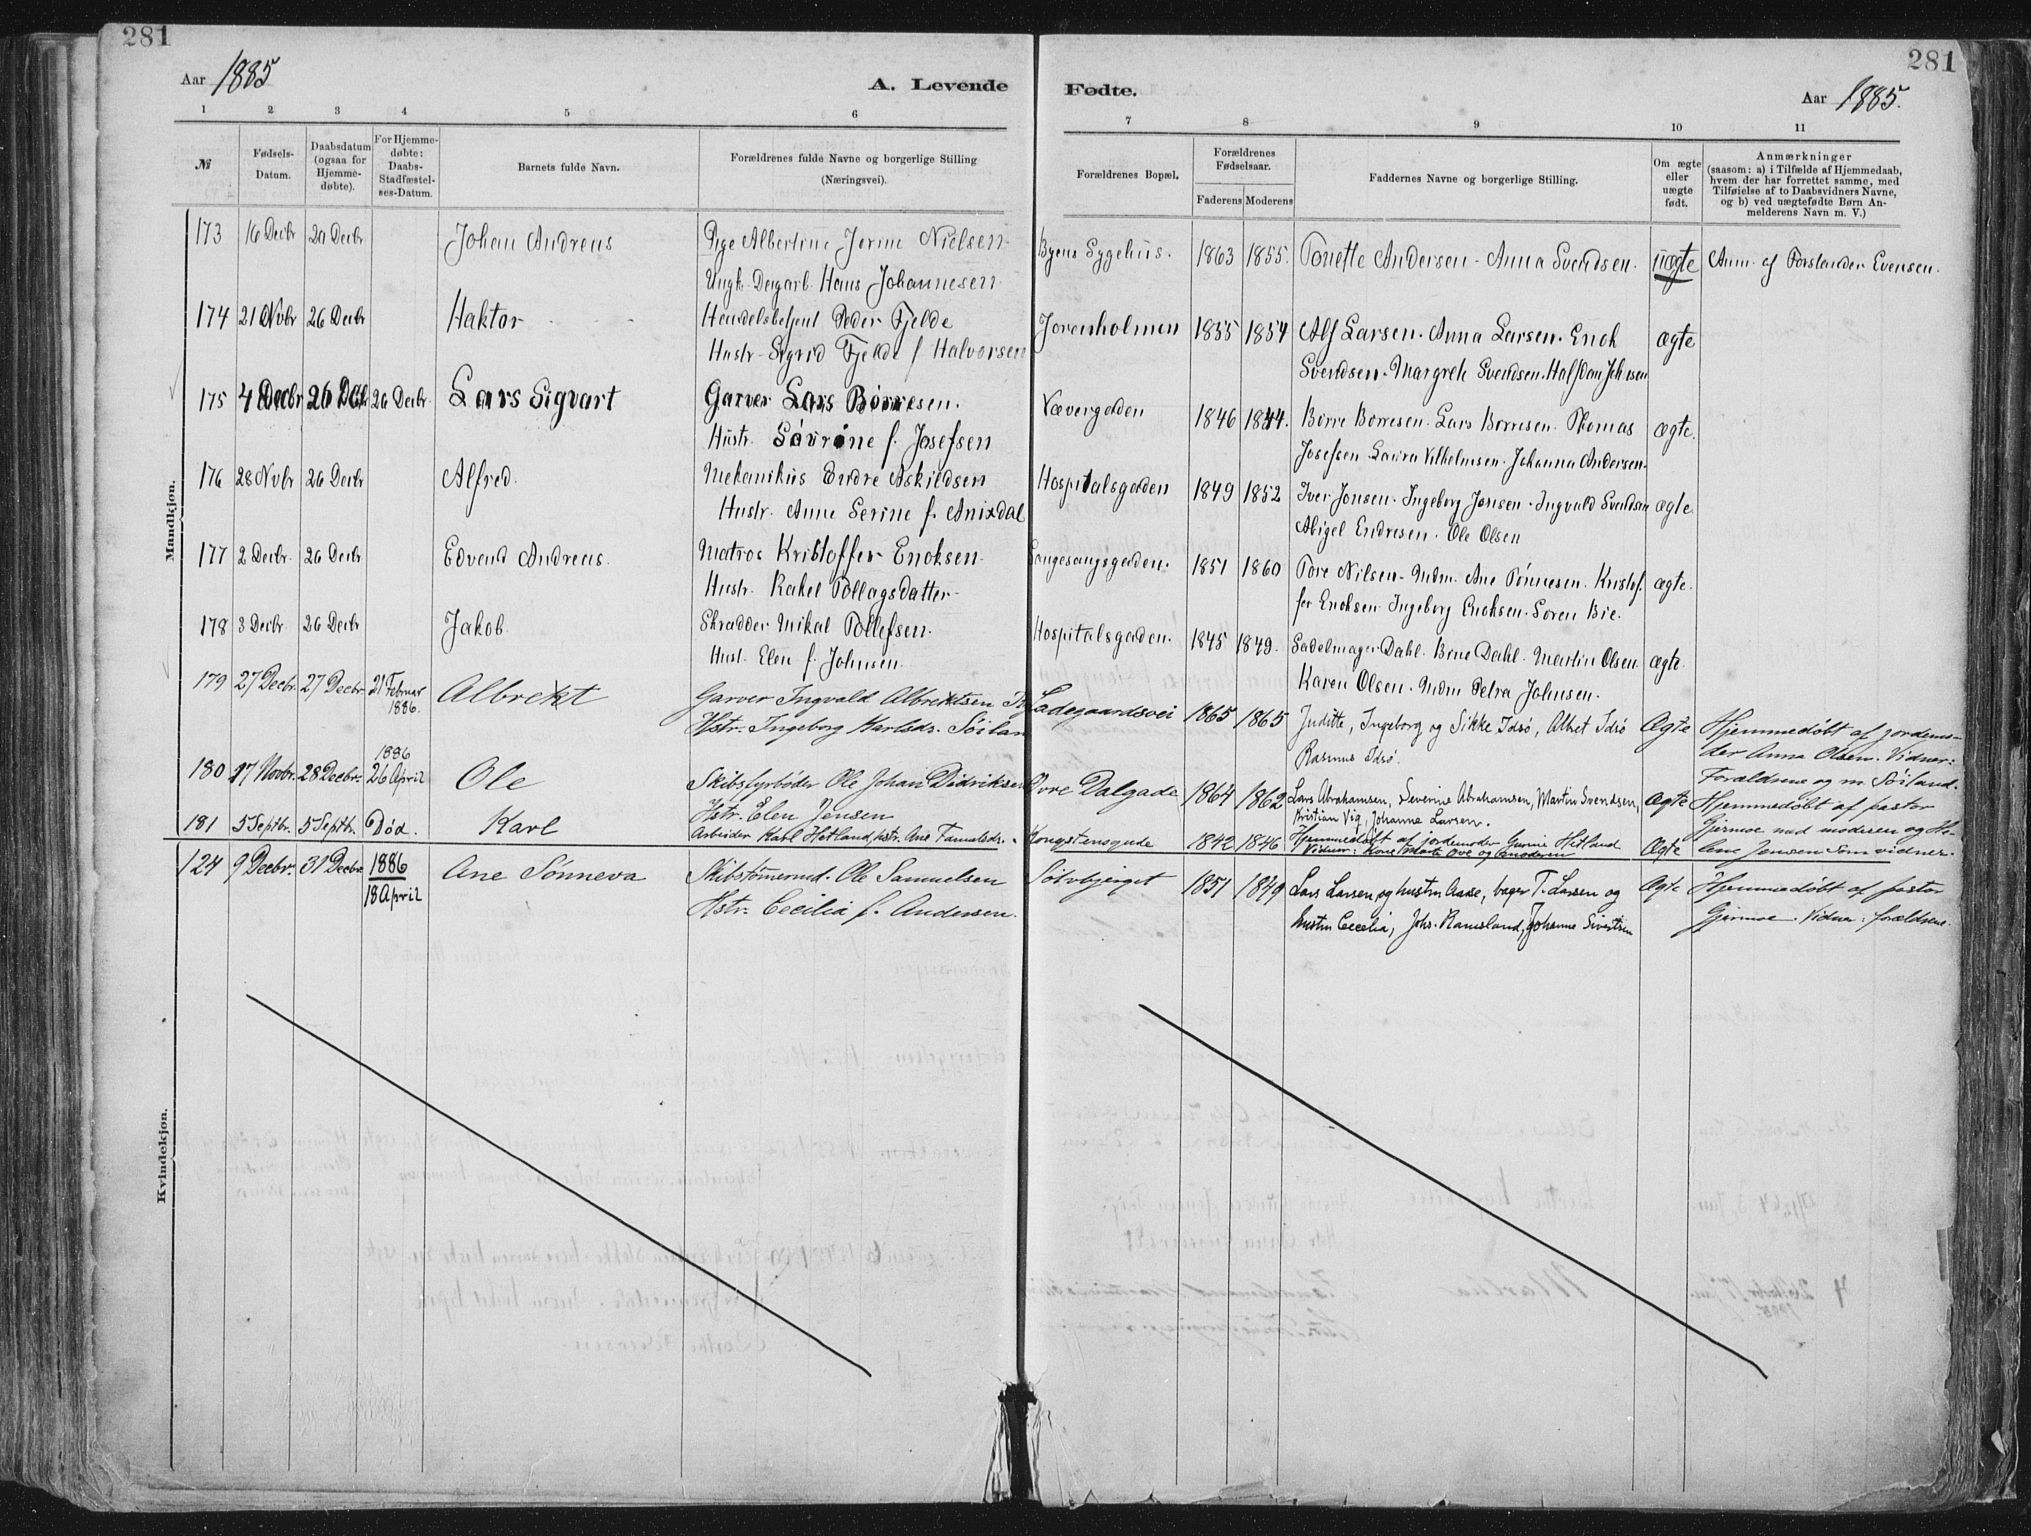 281
281
Aar 1885
A. Levende
Fødte.
Aar 1885.
1 2 3 4 5 6
7 8 9 10 11
№
Fødsels-
Datum.
Daabsdatum
(ogsaa for
Hjemme-
døbte).
For Hjemme-
døbte:
Daabs-
Stadfæstel-
ses-Datum.
Barnets fulde Navn.
Forældrenes fulde Navne og borgerlige Stilling
(Næringsvei).
Forældrenes Bopæl.
Forældrenes
Fødselsaar.
Faderens Moderens
Faddernes Navne og borgerlige Stilling.
Om ægte
eller
uægte
født.
Anmærkninger
(saasom: a) i Tilfælde af Hjemmedaab,
hvem der har forrettet samme, med
Tilføielse af to Daabsvidners Navne,
og b) ved uægtefødte Børn An-
melderens Navn m. V.)
Mandkjøn.
173 16 Decbr 20 Decbr Johan Andreas Pige Albertine Jorine Nielsen Byens Sygehus. 1863 1855. Tonette Andersen - Anna Svendsen. uægte Anm. af Forstander Evensen.
Ungk. Hans Johannesen
174 21 Novbr 26 Decbr Haktor Handelsbetjent Peder Fjelde Jorenholmen 1855 1854 Alf Larsen. Anna Larsen. Enok ægte
Hustr. Sigrid Fjelde f. Halvorsen Svendsen. Margrete Svendsen. Halfdan Johnsen
175 4 Decbr 26 Dcbr 26 Decbr. Lars Sigvart Garver Lars Børresen. Vævergaden 1846 1844. Børre Børresen. Lars Børresen. Thomas ægte.
Hustr. Søvrine f. Josefsen Josefsen Laura Vilhelmsen. Johanna Andersen.
176 28 Nvbr 26 Decbr Alfred. Mekanikus Endre Askildsen Hospitalsgaden 1849 1852 Iver Jonsen. Ingeborg Jonsen. Ingvald Svendsen ægte.
Hustr. Anne Serine f. Anixdal Abigel Endresen. Ole Olsen
177 2 Decbr. 26 Decbr Edvard Andreas. Matros Kristoffer Enoksen. Langesangsgaden. 1851 1860 Tore Nilsen. Mdm. Ane Tønnesen. Kristof- ægte.
Hustr. Rakel Tollagsdatter. fer Enoksen Ingeborg Enoksen. Soren Bie.
178 3 Decbr 26 Decbr Jakob. Skrædder Mikal Tollefsen. Hospitalsgaden. 1845 1849. Sadelmager Dahl. Brne Dahl. Martin Olsen. ægte.
Hust. Elen f. Johnsen. Karen Olsen. Mdm Petra Johnsen.
179 27 Decbr. 27 Decbr. 21 Februar Albrekt Garver Ingvald Albrektsen Ladegaardsvei 1865 1865 Juditte, Ingeborg og Sikke Idsø, Albret Idsø Ægte Hjemmedøbt af jordemo-
1886. Hstr. Ingeborg Karlsdr. Søiland Rasmus Idsø. der Anna Olsen. Vidner:
Forældrene og m. Søiland.
1886
180 17 Novbr. 28 Decbr. 26 April Ole Skibsfyrbøder Ole Johan Didriksen Øvre Dalgade 1864 1862 Lars Abrahamsen, Severine Abrahamsen, Martin Svendsen, Ægte Hjemmedøbt af pastor
Hstr. Elen Jensen Kristian Vig, Johanne Larsen. Gjermoe med moderen og He-
lene Jensen som vidner.
181 5 Septbr. 5 Septbr. Død. Karl Arbeider Karl Hetland, hstr. Ane Tamalsdr. Kongstensgade 1842 1846 Hjemmedøbt af jordemoder Gunne Hetland Ægte
Vidner: Kone Marte Ove og moderen
Kvindekjøn.
124 9 Decbr. 31 Decbr. 1886 Ane Sønneva Skibstømrmd. Ole Samuelsen Sølvbjerget 1851 1849 Lars Larsen og hustru Aase, bager T. Larsen og Ægte Hjemmedøbt af pastor
18 April Hstr. Cecilia f. Andersen. hustru Cecelia, Johs. Ramsland, Johanne Sivertsen Gjermoe. Vidner: forældrene.